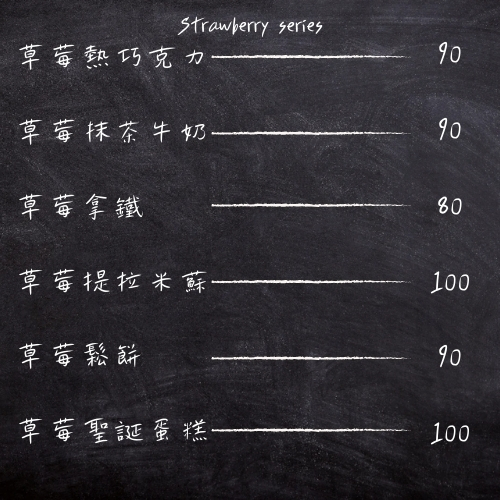 Strawberry series
草莓熱巧克力 90
草莓抹茶牛奶 90
草莓拿鐵 80
草莓提拉米蘇 100
草莓鬆餅 90
草莓聖誕蛋糕 100